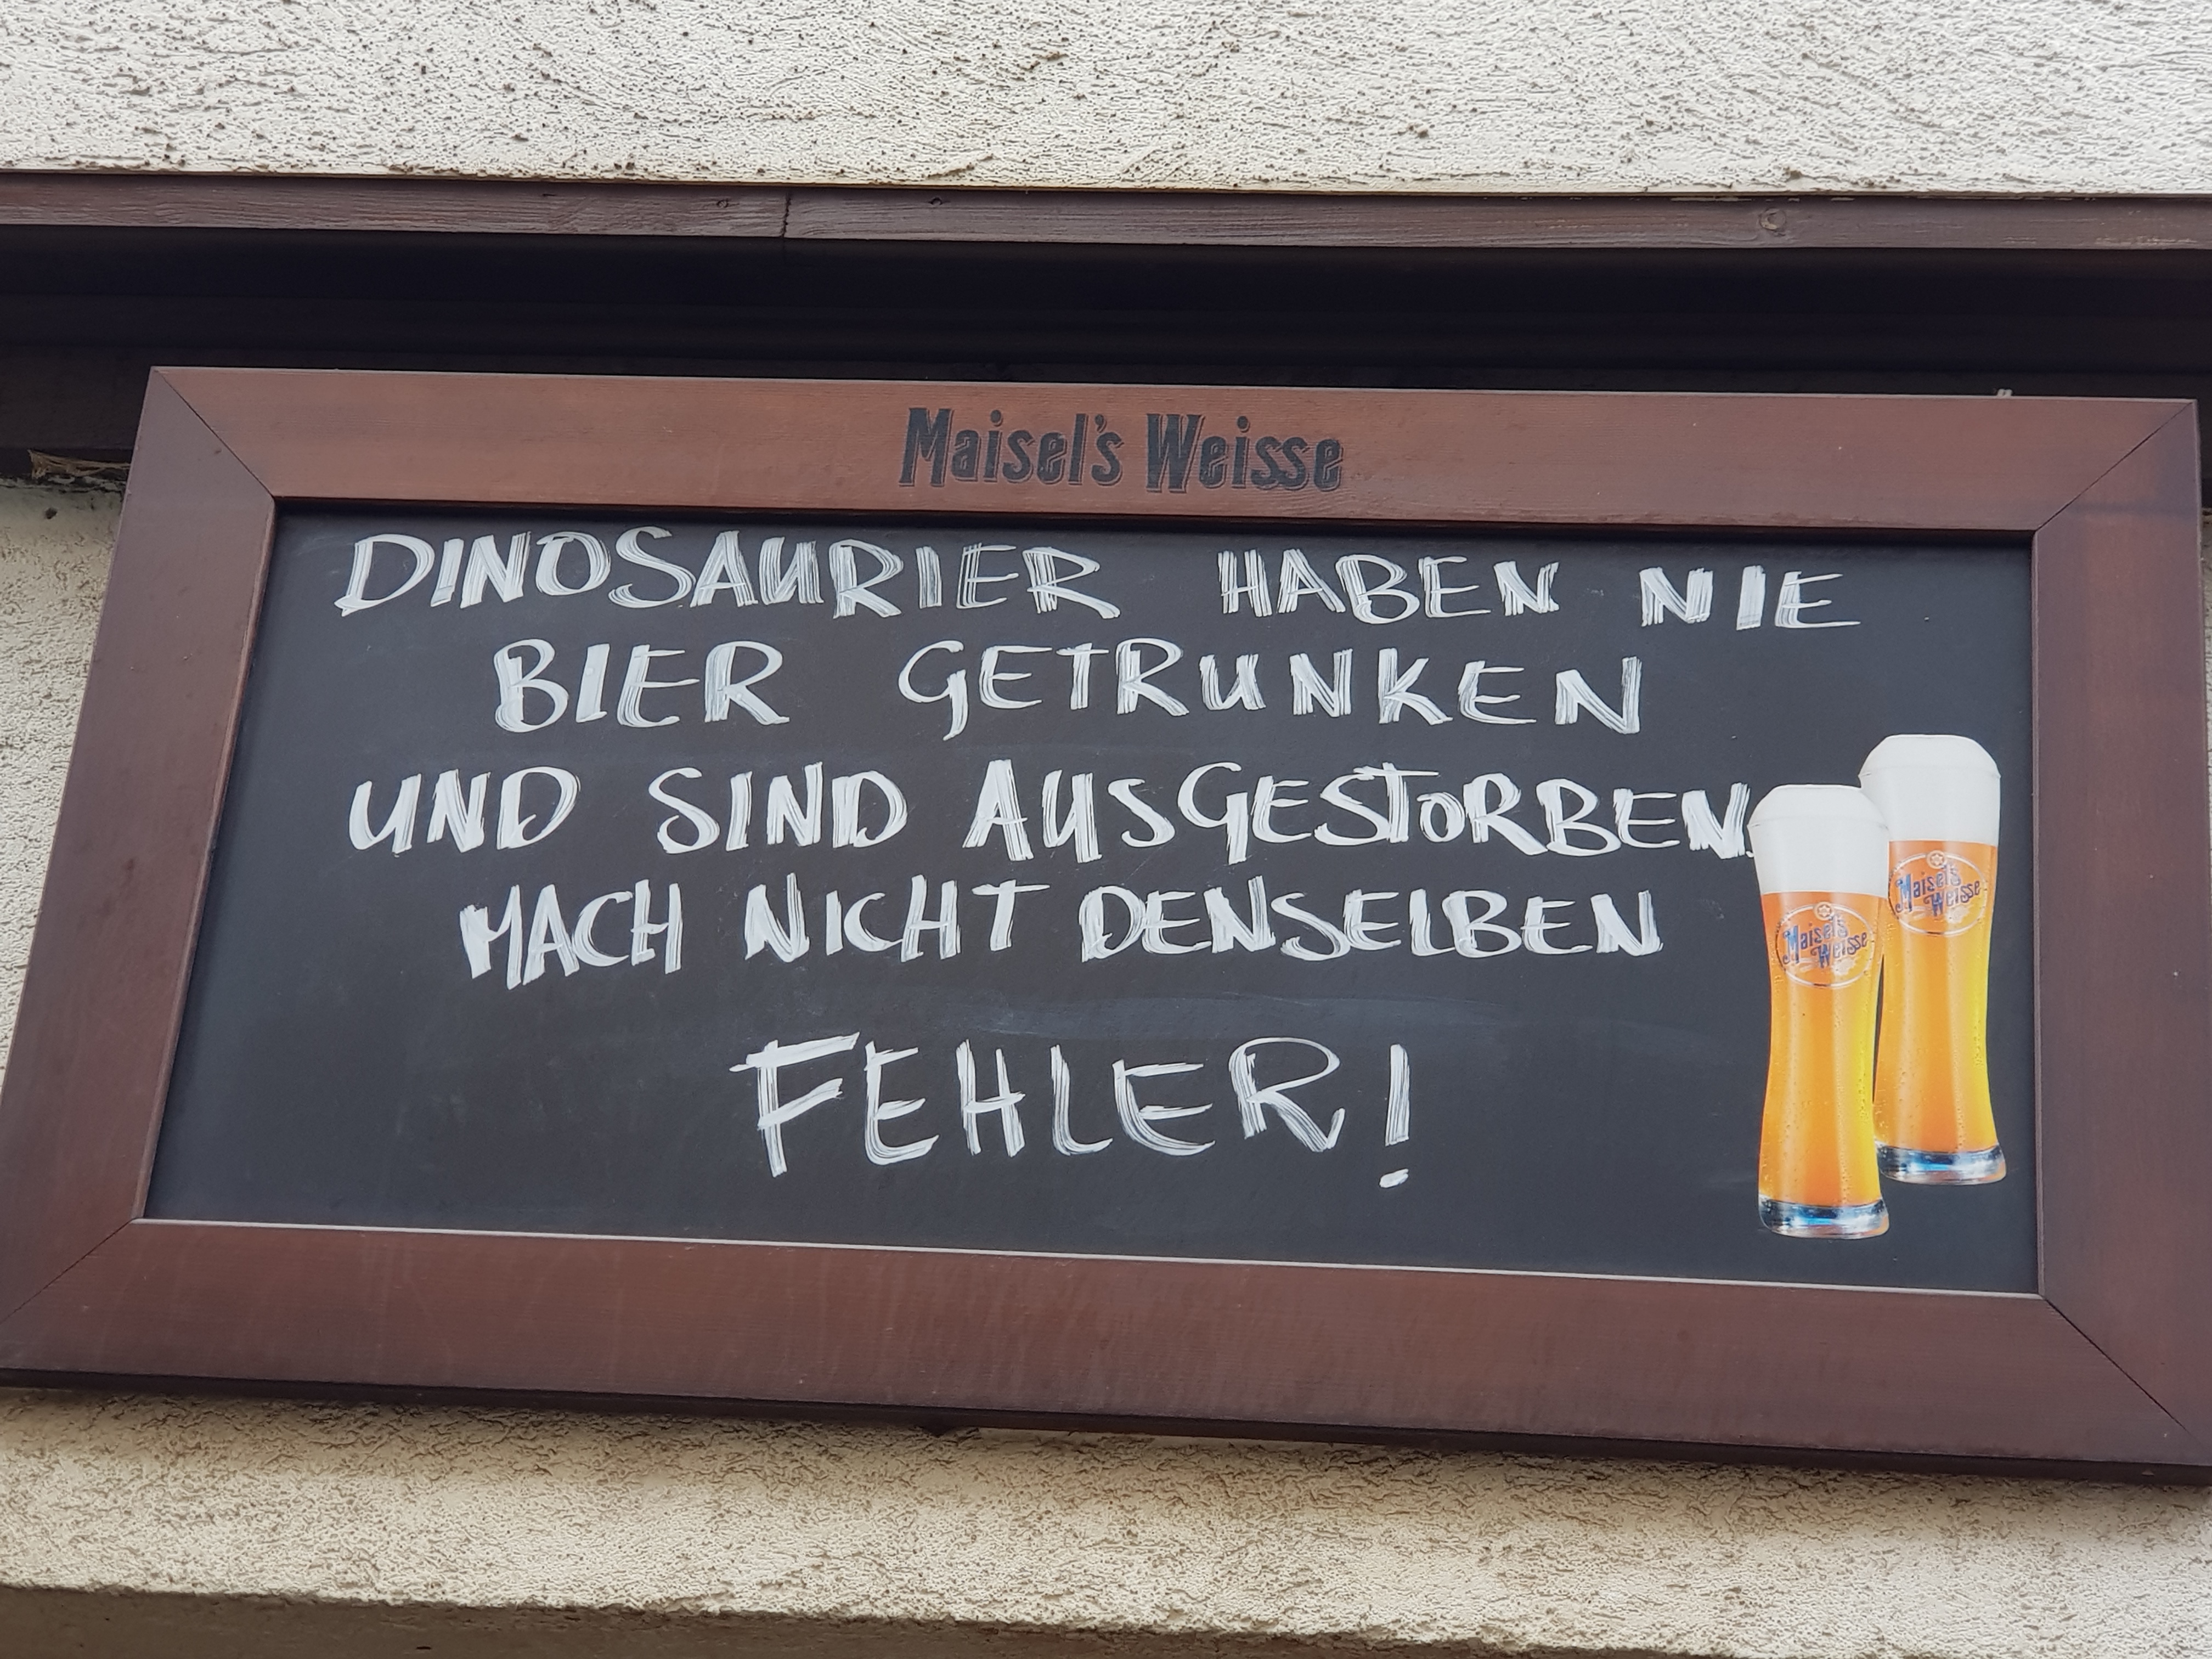 Maisel's Weisse
DINOSAURIER HABEN NIE
BIER GETRUNKEN
UND SIND AUSGESTORBEN.
MACH NICHT DENSELBEN
FEHLER!
Maisel's
Weisse
Maisel's
Weisse